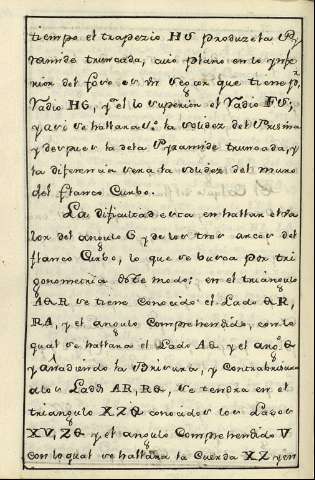 tiempo el trapezio HS produze la Py
ramide truncada, cuio plano en lo ynfe
rior del foso es un sector que tiene pr.
Radio HG, y en lo superior el Radio FS;
y assi se hallara la solidez del Prisma
y despues la de la Pyramide truncada, y
la diferencia sera la solidez del muro
del flanco Curbo.
La dificultad esta en hallar el va
lor del angulo G y de los tros arcos del
flanco Curbo, lo que se busca por tri
gonometria deste modo: en el triangulo
AQR se tiene conocido el Lado QR,
RA, y el angulo Comprehendido, con lo
qual se hallara el Lado AQ, y el ang.o Q
y añadiendo la Brisura, y Contrabrisura
a los Lados AR, RQ, se tendra en el
triangulo XZQ conocidos los Lados
XV, ZQ y el angulo Comprehendido V
con lo qual se hallara la Cuerda XZ y en